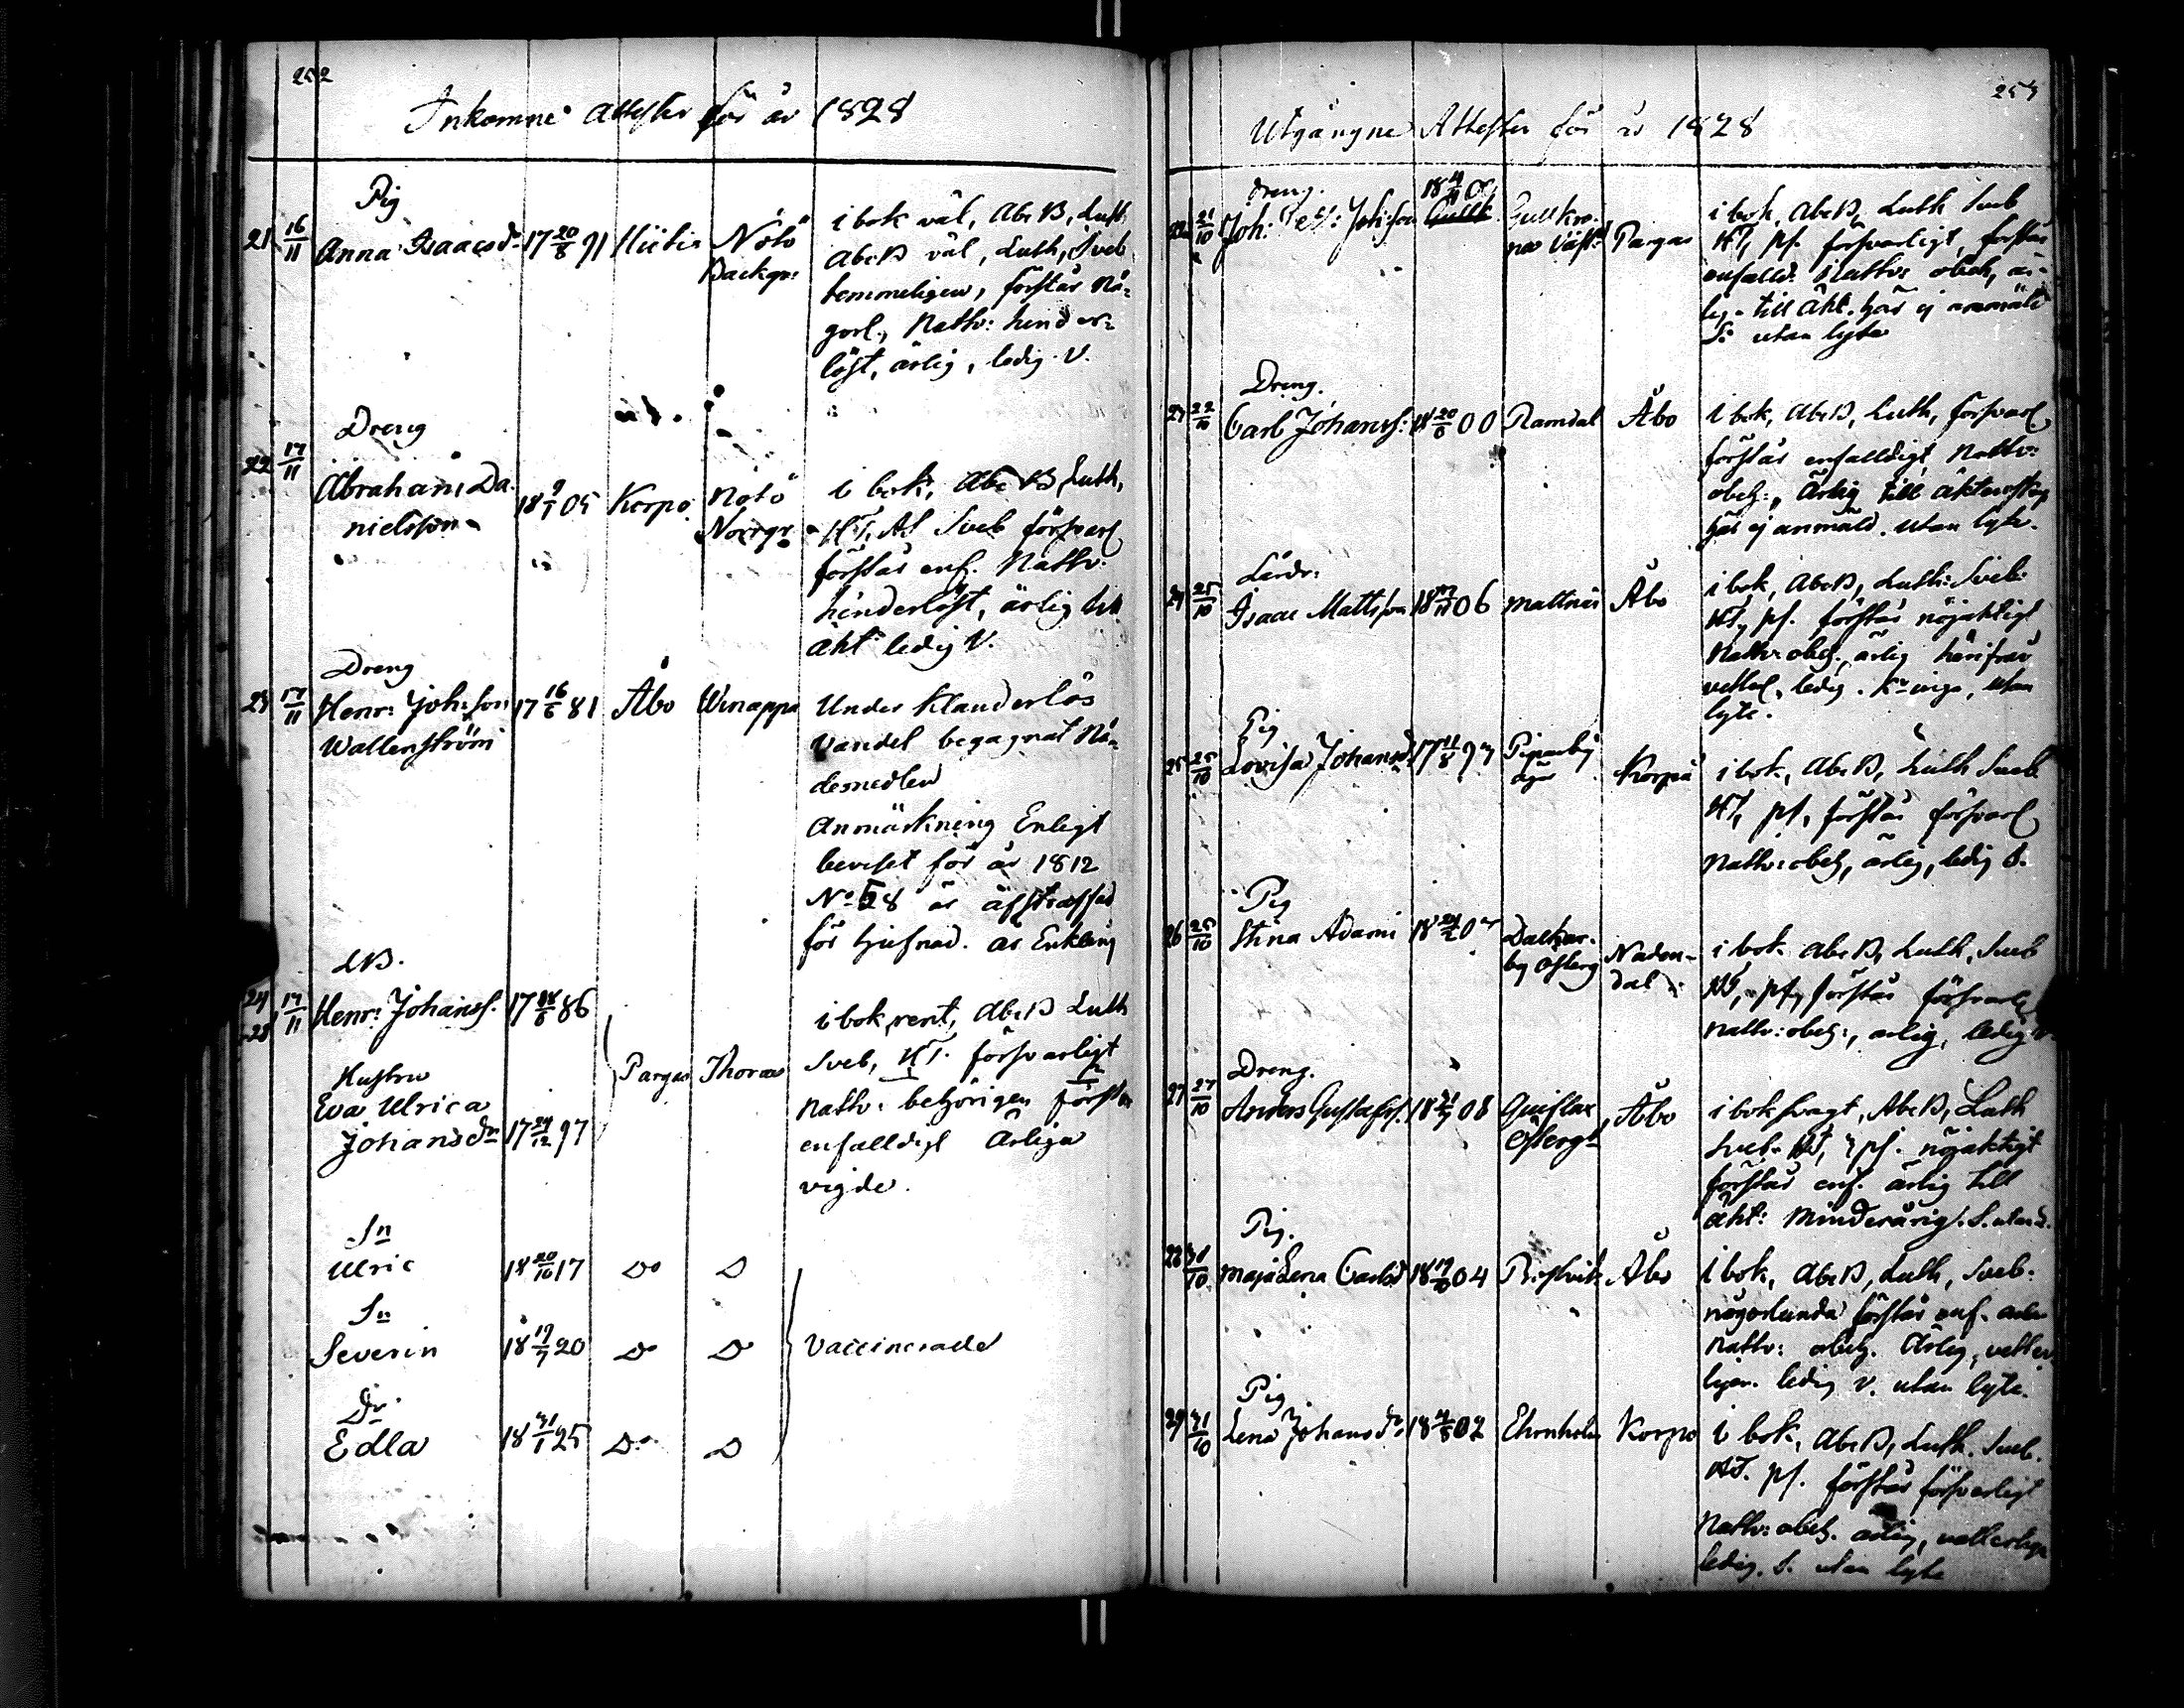 252
Inkomne Attester för år 1828
Pig
21 16/11 Anna Isaacsdr 17 20/8 91 Hiitis Nötö Backgr:
i bok väl, AbcB, Luth
AbcB väl, Luth, Sveb
temmeligen, förstår Nå-
gorl., Nattv: hinder-
löst, ärlig, ledig. V.
Dreng
22 17/11 Abraham Da-
nielsson 18 9/1 05 Korpo Nötö Norrgr
i bok, AbcB, Luth,
HT, At Sveb försvarl
förstår enf. Nattv.
hinderlöst, ärlig till
äkt ledig V.
Dreng
23 17/11 Henr: Joh:son 17 16/6 81 Åbo Winappa
Wallenström
Under klanderlös
vandel begagnat Nå-
desmedlen
Anmärkning Enligt
beviset för år 1812
No 58 är afstraffad
för tjufnad. är Enkling
LB.
24 17/11 Henr: Johanss. 17 /6 86
25
Hustru
Eva Ulrica
Johansdr 17 24/12 97
Pargas Thorsa
i bok rent, AbcB Luth
Sveb, HT. försvarligt
Nattv: behörigen förstå
enfalldigt Ärliga
vigde.
Sn
Ulric 18 20/10 17 Do D
Sn
Severin 18 19/7 20 Do Do
Dr
Edla 18 31/1 25 Do D
Vaccinerade
253
Utgångne Attester för år 1828
Dreng.
22 21/10 Joh: Pet: Joh:son 18 4/ 00 Gullkro-
na Väst: Pargas
i bok, AbcB, Luth Sveb
HT, ps. försvarligt, förstår
enfalld: Nattv: obeh, är-
lig. till äkt. här ej anmäld
S: utan lyte
Dreng.
23 22/10 Carl Johanss: 18 20/6 00 Ramdal Åbo
i bok, AbcB, Luth, försvarl
förstår enfalldigt Nattv:
obeh:, Ärlig till äktenskap
här ej anmäld. utan lyte.
Lärdr:
24 25/10 Isaac Mattsson 18 06 Mattnäs Åbo
i bok, AbcB, Luth: Sveb:
HT, ps. förstår nöjaktigt
Nattv: obeh., ärlig härifrån
vetterl, ledig. inga, utan
lyte.
Pig
25 25/10 Lovisa Johansd: 17 11/8 97 Piparby Korpo
i bok, AbcB, Luth Sveb
HT, ps, förstår försvarl
Nattv: obeh, ärlig, ledig S.
Pig
26 25/10 Stina Adami 18 24/2 0 Dalkar-
by Österg Naden-
dal
i bok AbcB, Luth, Sveb
HT, ps, förstår försvarl
Nattv: obeh:, ärlig, ledig
Dreng.
27 27/10 Anders Gustafss. 18 21/7 08 Gyttja
Österg Åbo
i bok svagt, AbcB, Luth
Sveb. HT, ps. nöjaktigt
förstår enf. ärlig till
äkt: Minderårig. S. utan
Pig.
28 31/10 Maja Lena Carlsd 18 04 Prostvik Åbo
i bok, AbcB, Luth, Sveb.
någorlunda förstår enf.
Nattv: obeh. Ärlig, vetter-
ligen ledig v. utan lyte.
Pig
29 31/10 Lena Johansdr 18 4/8 02 Ernholm Korpo
i bok, AbcB, Luth. Sveb.
HT. ps. förstår försvarligt
Nattv: obeh. ärlig, vetterlige
ledig. S. utan lyte